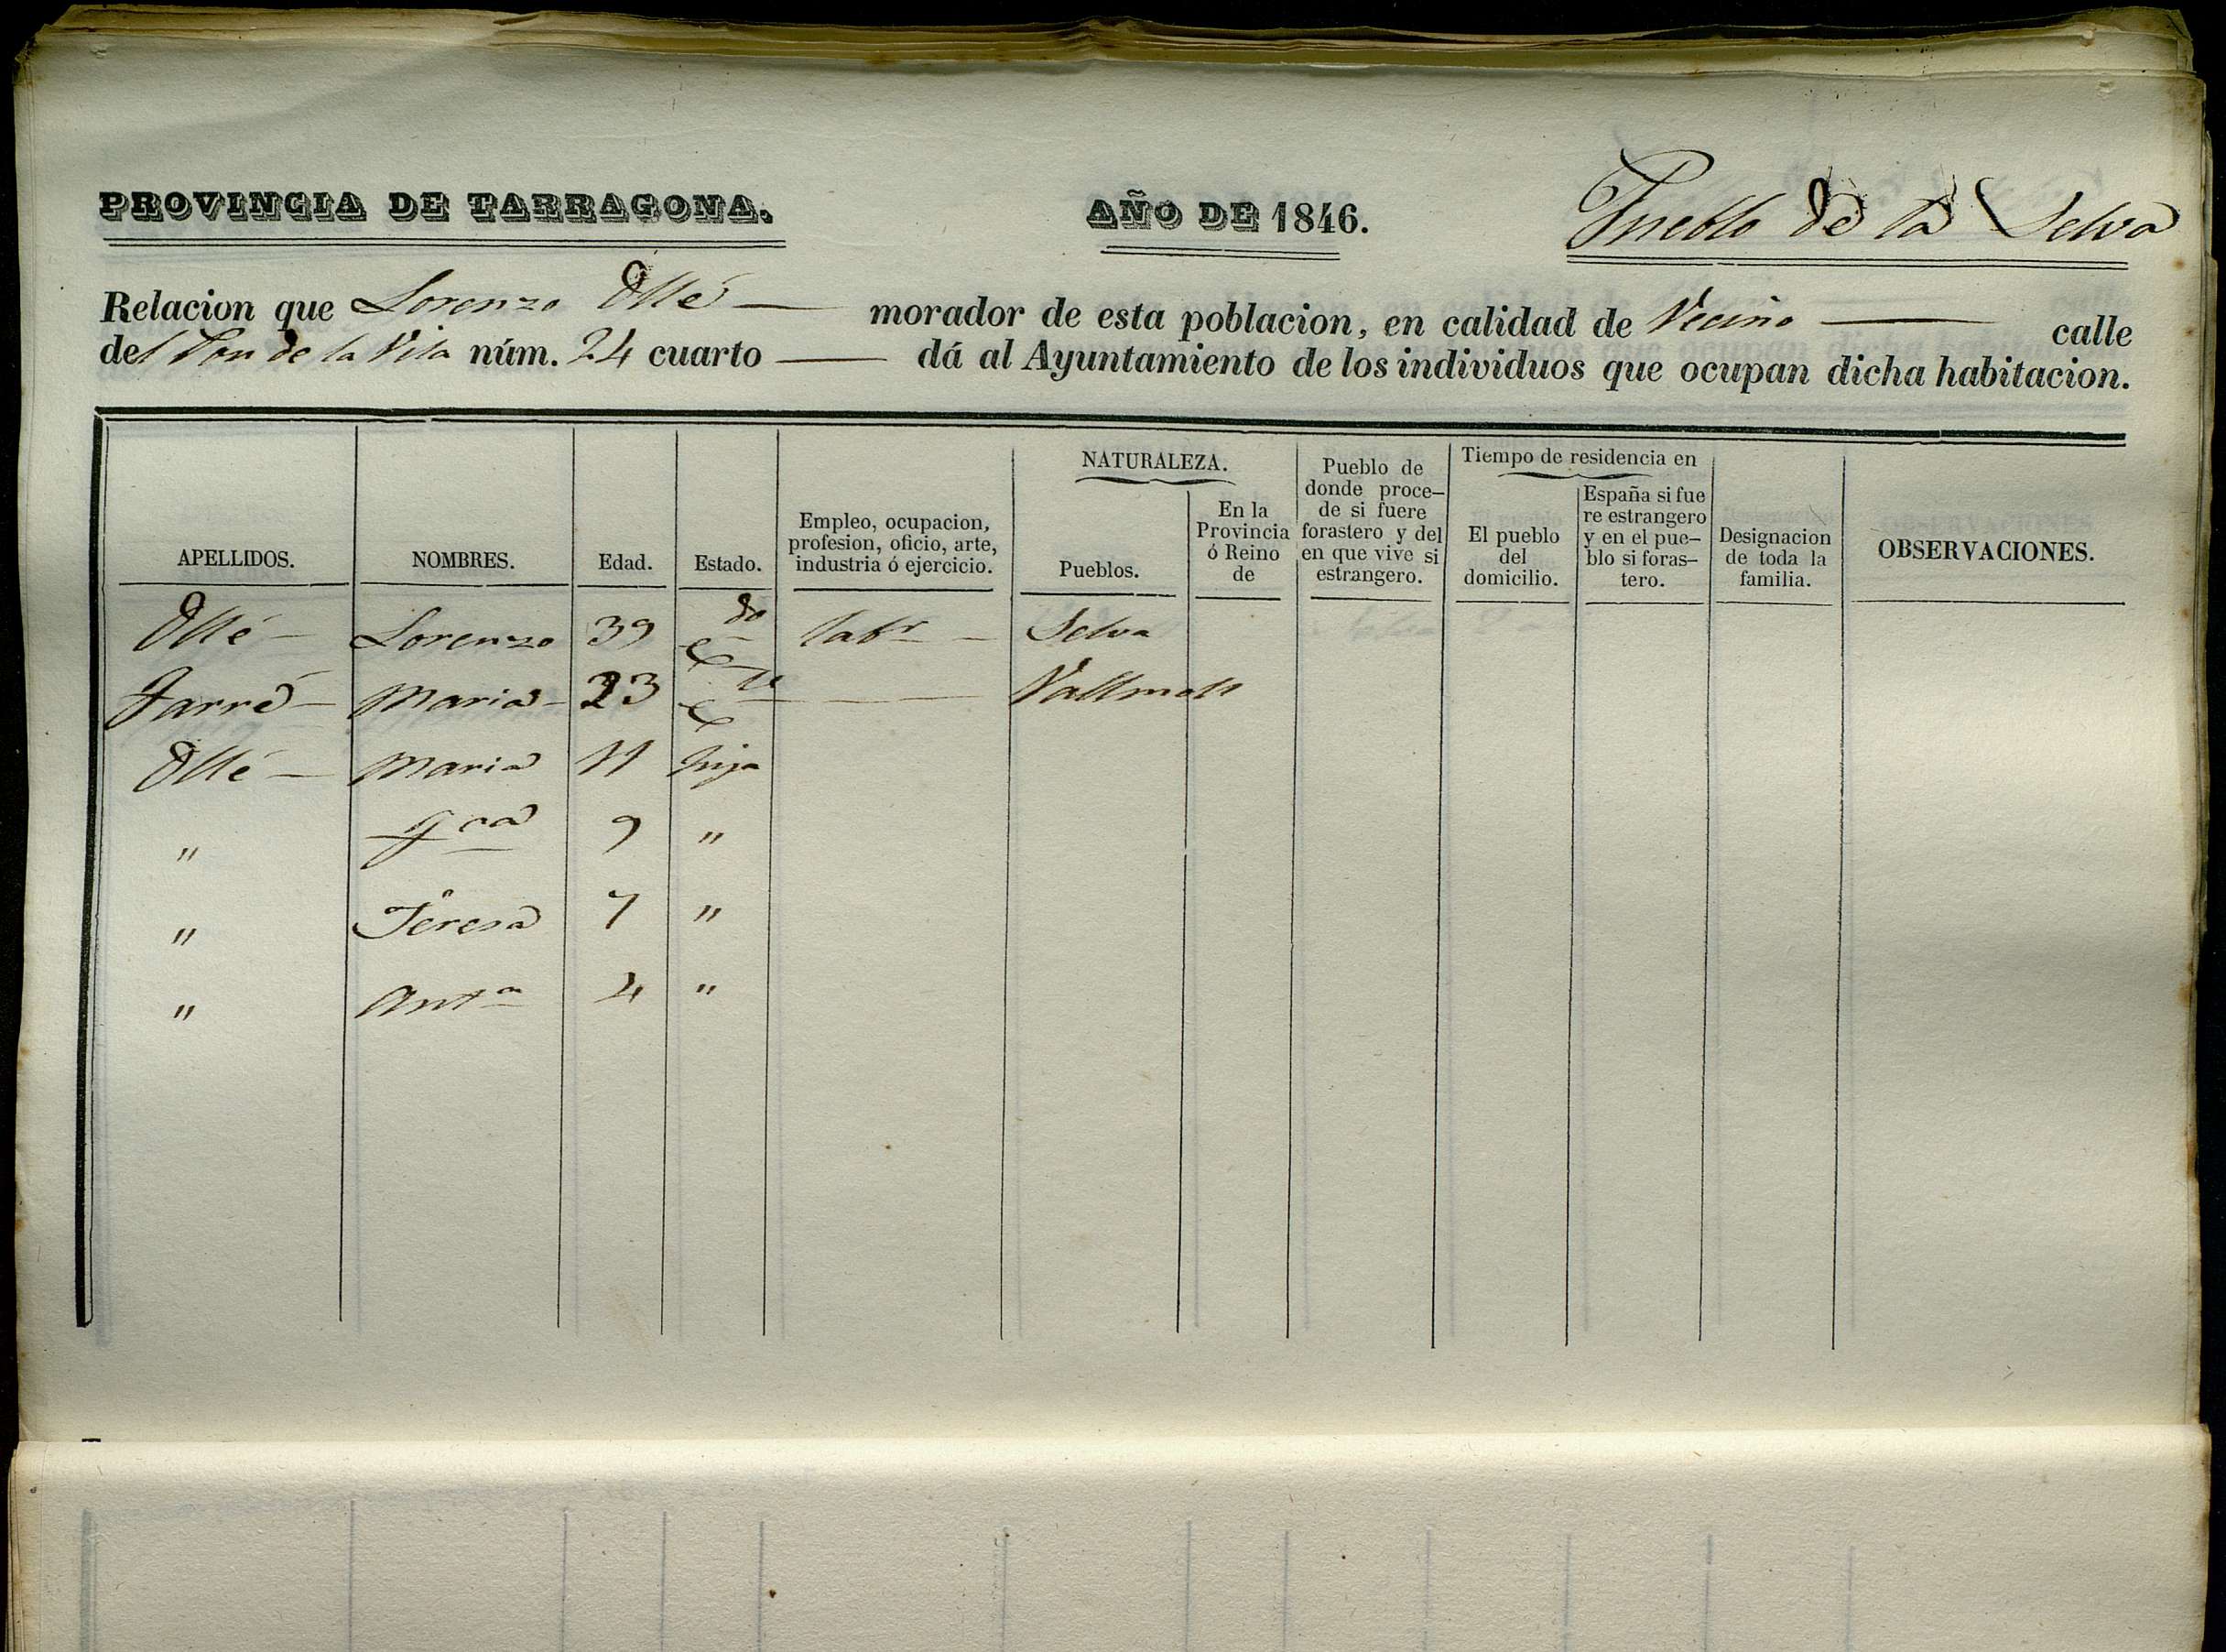 PROVINCIA DE TARRAGONA. AÑO DE 1846. Pueblo de la Selva
Relacion que Lorenzo Ollé — morador de esta poblacion, en calidad de Vecino — calle
del Fon de la Vila núm. 24 cuarto — dá al Ayuntamiento de los individuos que ocupan dicha habitacion.
APELLIDOS.
NOMBRES.
Edad.
Estado.
Empleo, ocupacion,
profesion, oficio, arte,
industria ó ejercicio.
NATURALEZA.
Pueblos.
En la
Provincia
ó Reino
de
Pueblo de
donde proce-
de si fuere
forastero y del
en que vive si
estrangero.
Tiempo de residencia en
El pueblo
del
domicilio.
España si fue
re estrangero
y en el pue-
blo si foras-
tero.
Designacion
de toda la
familia.
OBSERVACIONES.
Ollé — Lorenzo 39 C.do labr — Selva
Farré — Maria — 23 C.da — Vallmoll
Ollé — Maria 11 hija
" Fca 9 "
" Teresa 7 "
" Anta 4 "